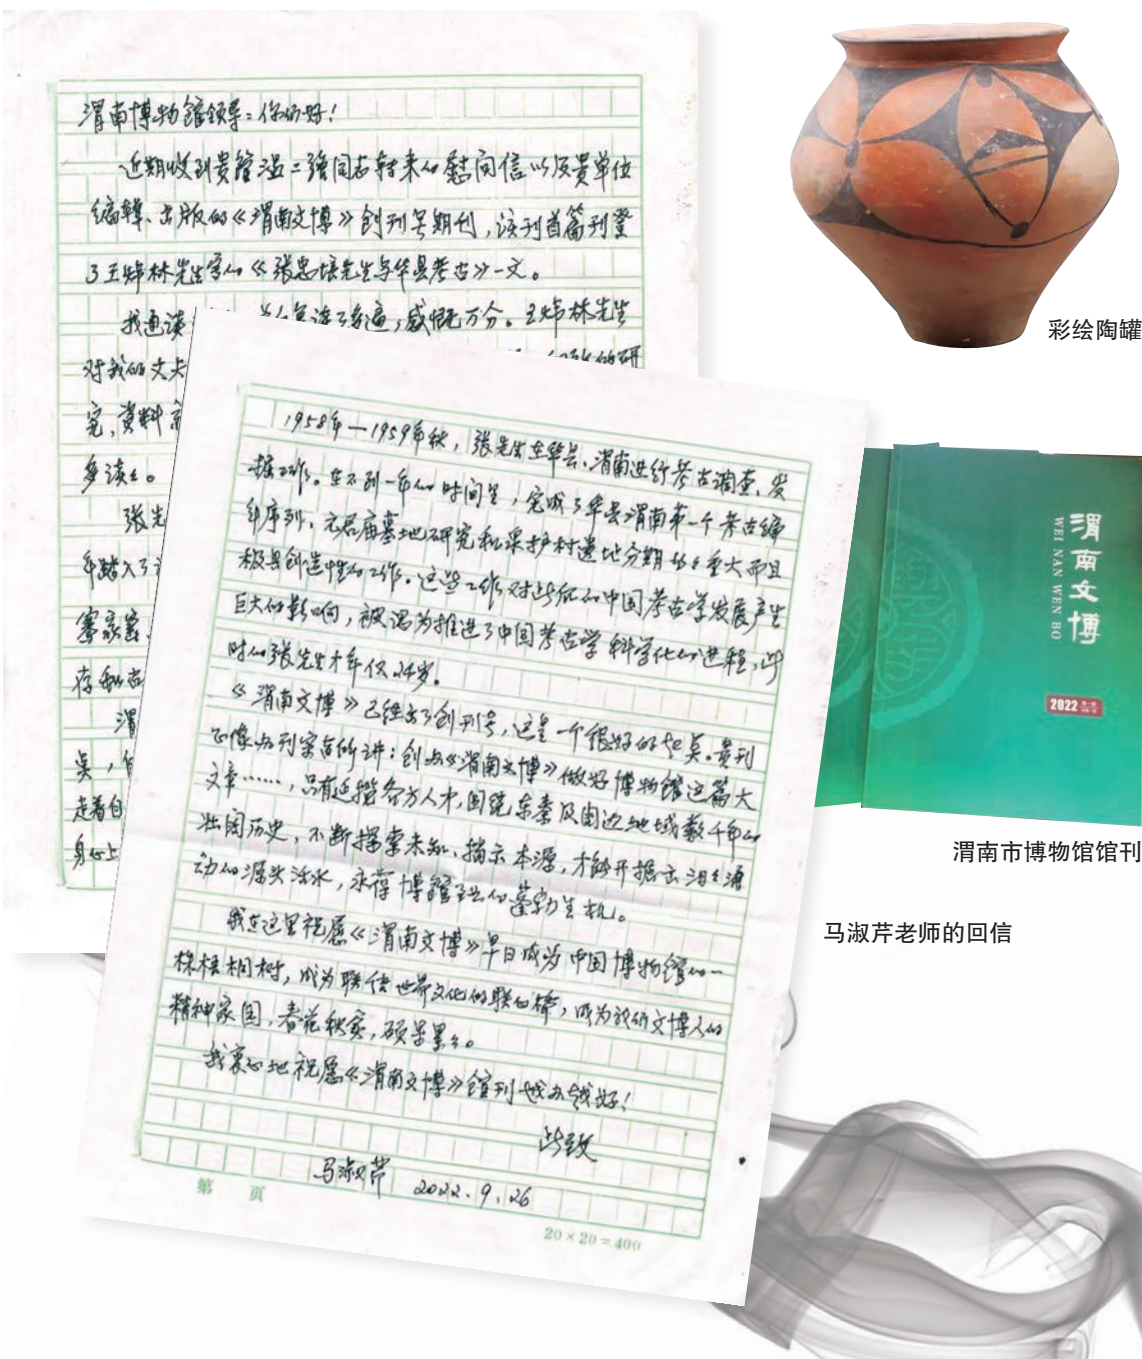 渭南博物馆领导：你们好！
近期收到贵馆温二强同志转来的慰问信以及贵单位
编辑、出版的《渭南文博》创刊号期刊，该刊首篇刊登
了王炜林先生写的《张忠培先生与华县考古》一文。
我通读 遍，感慨万分。王炜林先生
对我的丈夫 的研
究，资料
多读些。
张先
年踏入了
寨
存和
渭
奠，
走着自
身心上
1958年—1959年秋，张先生在华县、渭南进行考古调查、发
掘工作。在不到一年的时间里，完成了华县渭南第一个考古编
年序列、元君庙墓地研究和泉护村遗址分期等重大而且
极具创造性的工作。这些工作对此后的中国考古学发展产生
巨大的影响，被认为推进了中国考古学科学化的进程，此
时的张先生才年仅24岁。
《渭南文博》已经出了创刊号，这是一个很好的起点。贵刊
正像办刊宗旨所讲：创办《渭南文博》做好博物馆这篇大
文章……，只有延揽各方人才，围绕东秦及周边地域数千年的
壮阔历史，不断探索未知、揭示本源，才能开掘出汩汩涌
动的源头活水，永葆博馆 的蓬勃生机。
我在这里祝愿《渭南文博》早日成为中国博物馆的一
株梧桐树，成为联结世界文化的联心桥，成为 文博人的
精神家园，春花秋实，硕果累累。
我衷心地祝愿《渭南文博》馆刊越办越好！
此致
马淑芹 2022.9.26
第 页
20×20=400
彩绘陶罐
渭南文博
WEI NAN WEN BO
2022
渭南市博物馆馆刊
马淑芹老师的回信